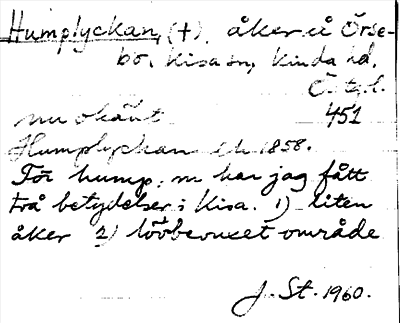 Humplyckan, (†), åker å Örse-
bo, Kisa sn, Kinda hd,
Ö.tgl.
nu okänt 451
Humplyckan ek 1858.
För hump, m har jag fått
två betydelser i Kisa. 1) liten
åker 2) lövbevuxet område
J. St. 1960.